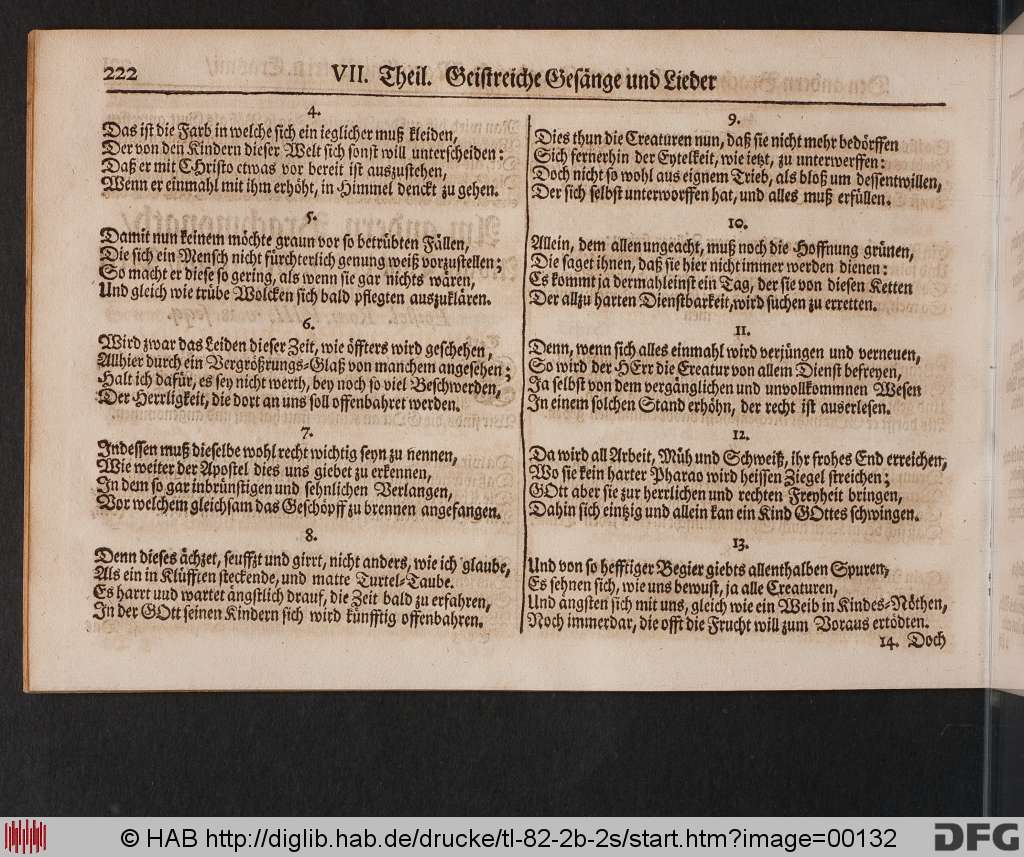 222
VII. Theil. Geistreiche Gesänge und Lieder
4.
Das ist die Farb in welche sich ein ieglicher muß kleiden,
Der von den Kindern dieser Welt sich sonst will unterscheiden:
Daß er mit CHristo etwas vor bereit ist auszustehen,
Wenn er einmahl mit ihm erhöht, in Himmel denckt zu gehen.
5.
Damit nun keinem möchte graun vor so betrübten Fällen,
Die sich ein Mensch nicht fürchterlich genung weiß vorzustellen;
So macht er diese so gering, als wenn sie gar nichts wären,
Und gleich wie trübe Wolcken sich bald pflegten auszuklären.
6.
Wird zwar das Leiden dieser Zeit, wie öffters wird geschehen,
Allhier durch ein Vergrößrungs-Glaß von manchem angesehen;
Halt ich dafür, es sey nicht werth, bey noch so viel Beschwerden,
Der Herrligkeit, die dort an uns soll offenbahret werden.
7.
Indessen muß dieselbe wohl recht wichtig seyn zu nennen,
Wie weiter der Apostel dies uns giebet zu erkennen,
In dem so gar inbrünstigen und sehnlichen Verlangen,
Vor welchem gleichsam das Geschöpff zu brennen angefangen.
8.
Denn dieses ächzet, seuffzt und girrt, nicht anders, wie ich glaube,
Als ein in Klüfften steckende, und matte Turtel-Taube.
Es harrt uud wartet ängstlich drauf, die Zeit bald zu erfahren,
In der GOtt seinen Kindern sich wird künfftig offenbahren.
9.
Dies thun die Creaturen nun, daß sie nicht mehr bedörffen
Sich fernerhin der Eytelkeit, wie ietzt, zu unterwerffen:
Doch nicht so wohl aus eignem Trieb, als bloß um dessentwillen,
Der sich selbst unterworffen hat, und alles muß erfüllen.
10.
Allein, dem allen ungeacht, muß noch die Hoffnung grünen,
Die saget ihnen, daß sie hier nicht immer werden dienen:
Es kommt ja dermahleinst ein Tag, der sie von diesen Ketten
Der allzu harten Dienstbarkeit, wird suchen zu erretten.
11.
Denn, wenn sich alles einmahl wird verjüngen und verneuen,
So wird der HErr die Creatur von allem Dienst befreyen,
Ja selbst von dem vergänglichen und unvollkommnen Wesen
In einem solchen Stand erhöhn, der recht ist auserlesen.
12.
Da wird all Arbeit, Müh und Schweiß, ihr frohes End erreichen,
Wo sie kein harter Pharao wird heissen Ziegel streichen;
GOtt aber sie zur herrlichen und rechten Freyheit bringen,
Dahin sich eintzig und allein kan ein Kind GOttes schwingen.
13.
Und von so hefftiger Begier giebts allenthalben Spuren,
Es sehnen sich, wie uns bewust, ja alle Creaturen,
Und ängsten sich mit uns, gleich wie ein Weib in Kindes-Nöthen,
Noch immerdar, die offt die Frucht will zum Voraus ertödten.
14. Doch
© HAB http://diglib.hab.de/drucke/tl-82-2b-2s/start.htm?image=00132
DFG